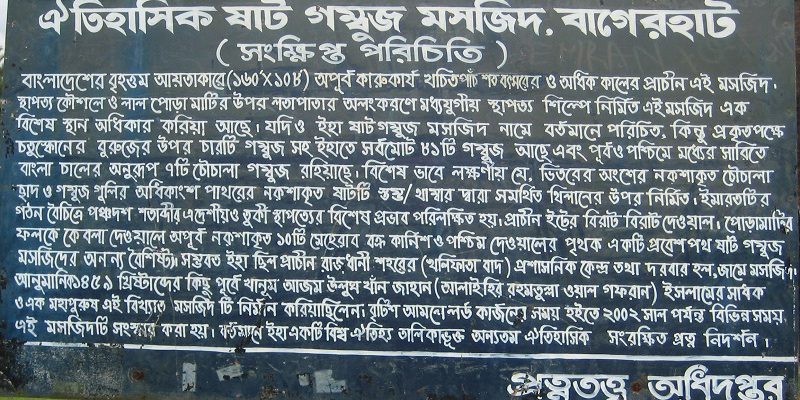 ঐতিহাসিক ষাট গম্বুজ মসজিদ, বাগেরহাট
( সংক্ষিপ্ত পরিচিতি )
বাংলাদেশের বৃহত্তম আয়তাকারে (১৬০'X১০৮') অপূর্ব কারুকার্য খচিত পাঁচ শত বৎসরের ও অধিক কালের প্রাচীন এই মসজিদ।
স্থাপত্য কৌশলে ও লাল পোড়া মাটির উপর লতাপাতার অলংকরণে মধ্যযুগীয় স্থাপত্য শিল্পে নির্মিত এই মসজিদ এক
বিশেষ স্থান অধিকার করিয়া আছে। যদিও ইহা ষাট গম্বুজ মসজিদ নামে বর্তমানে পরিচিত, কিন্তু প্রকৃতপক্ষে
চতুষ্কোনের বুরুজের উপর চারটি গম্বুজ সহ ইহাতে সর্বমোট ৮১টি গম্বুজ আছে এবং পূর্ব ও পশ্চিমে মধ্যের সারিতে
বাংলা চালের অনুরূপ ৭টি চৌচালা গম্বুজ রহিয়াছে। বিশেষ ভাবে লক্ষণীয় যে, ভিতরের অংশের নকশাকৃত চৌচালা
ছাদ ও গম্বুজ গুলির অধিকাংশ পাথরের নকশাকৃত ষাটটি স্তম্ভ/খাম্বার দ্বারা সমর্থিত খিলানের উপর নির্মিত। ইমারতটির
গঠন বৈচিত্রে পঞ্চদশ শতাব্দীর এদেশীয় ও তুর্কী স্থাপত্যের বিশেষ প্রভাব পরিলক্ষিত হয়। প্রাচীন ইটের বিরাট বিরাট দেওয়াল। পোড়ামাটির
ফলকে কেবলা দেওয়ালে অপূর্ব নকশাকৃত ১০টি মেহেরাব বক্র কার্নিশ ও পশ্চিম দেওয়ালের পৃথক একটি প্রবেশ পথ ষাট গম্বুজ
মসজিদের অনন্য বৈশিষ্ট্য। সম্ভবত ইহা ছিল প্রাচীন রাজধানী শহরের (খলিফাতা বাদ) প্রশাসনিক কেন্দ্র তথা দরবার হল, জামে মসজিদ।
আনুমানিক ১৪৫৯ খ্রিষ্টাব্দের কিছু পূর্বে খানুম আজম উলুঘ খাঁন জাহান (আলাইহির রহমতুল্লা ওয়াল গফরান) ইসলামের সাধক
ও এক মহাপুরুষ এই বিখ্যাত মসজিদ টি নির্মান করিয়াছিলেন। বৃটিশ আমলে লর্ড কার্জনের সময় হইতে ২০০২ সাল পর্যন্ত বিভিন্ন সময়
এই মসজিদটি সংস্কার করা হয়। বর্তমানে ইহা একটি বিশ্ব ঐতিহ্য তালিকাভূক্ত অন্যতম ঐতিহাসিক সংরক্ষিত প্রত্ন নিদর্শন।
প্রত্নতত্ত্ব অধিদপ্তর